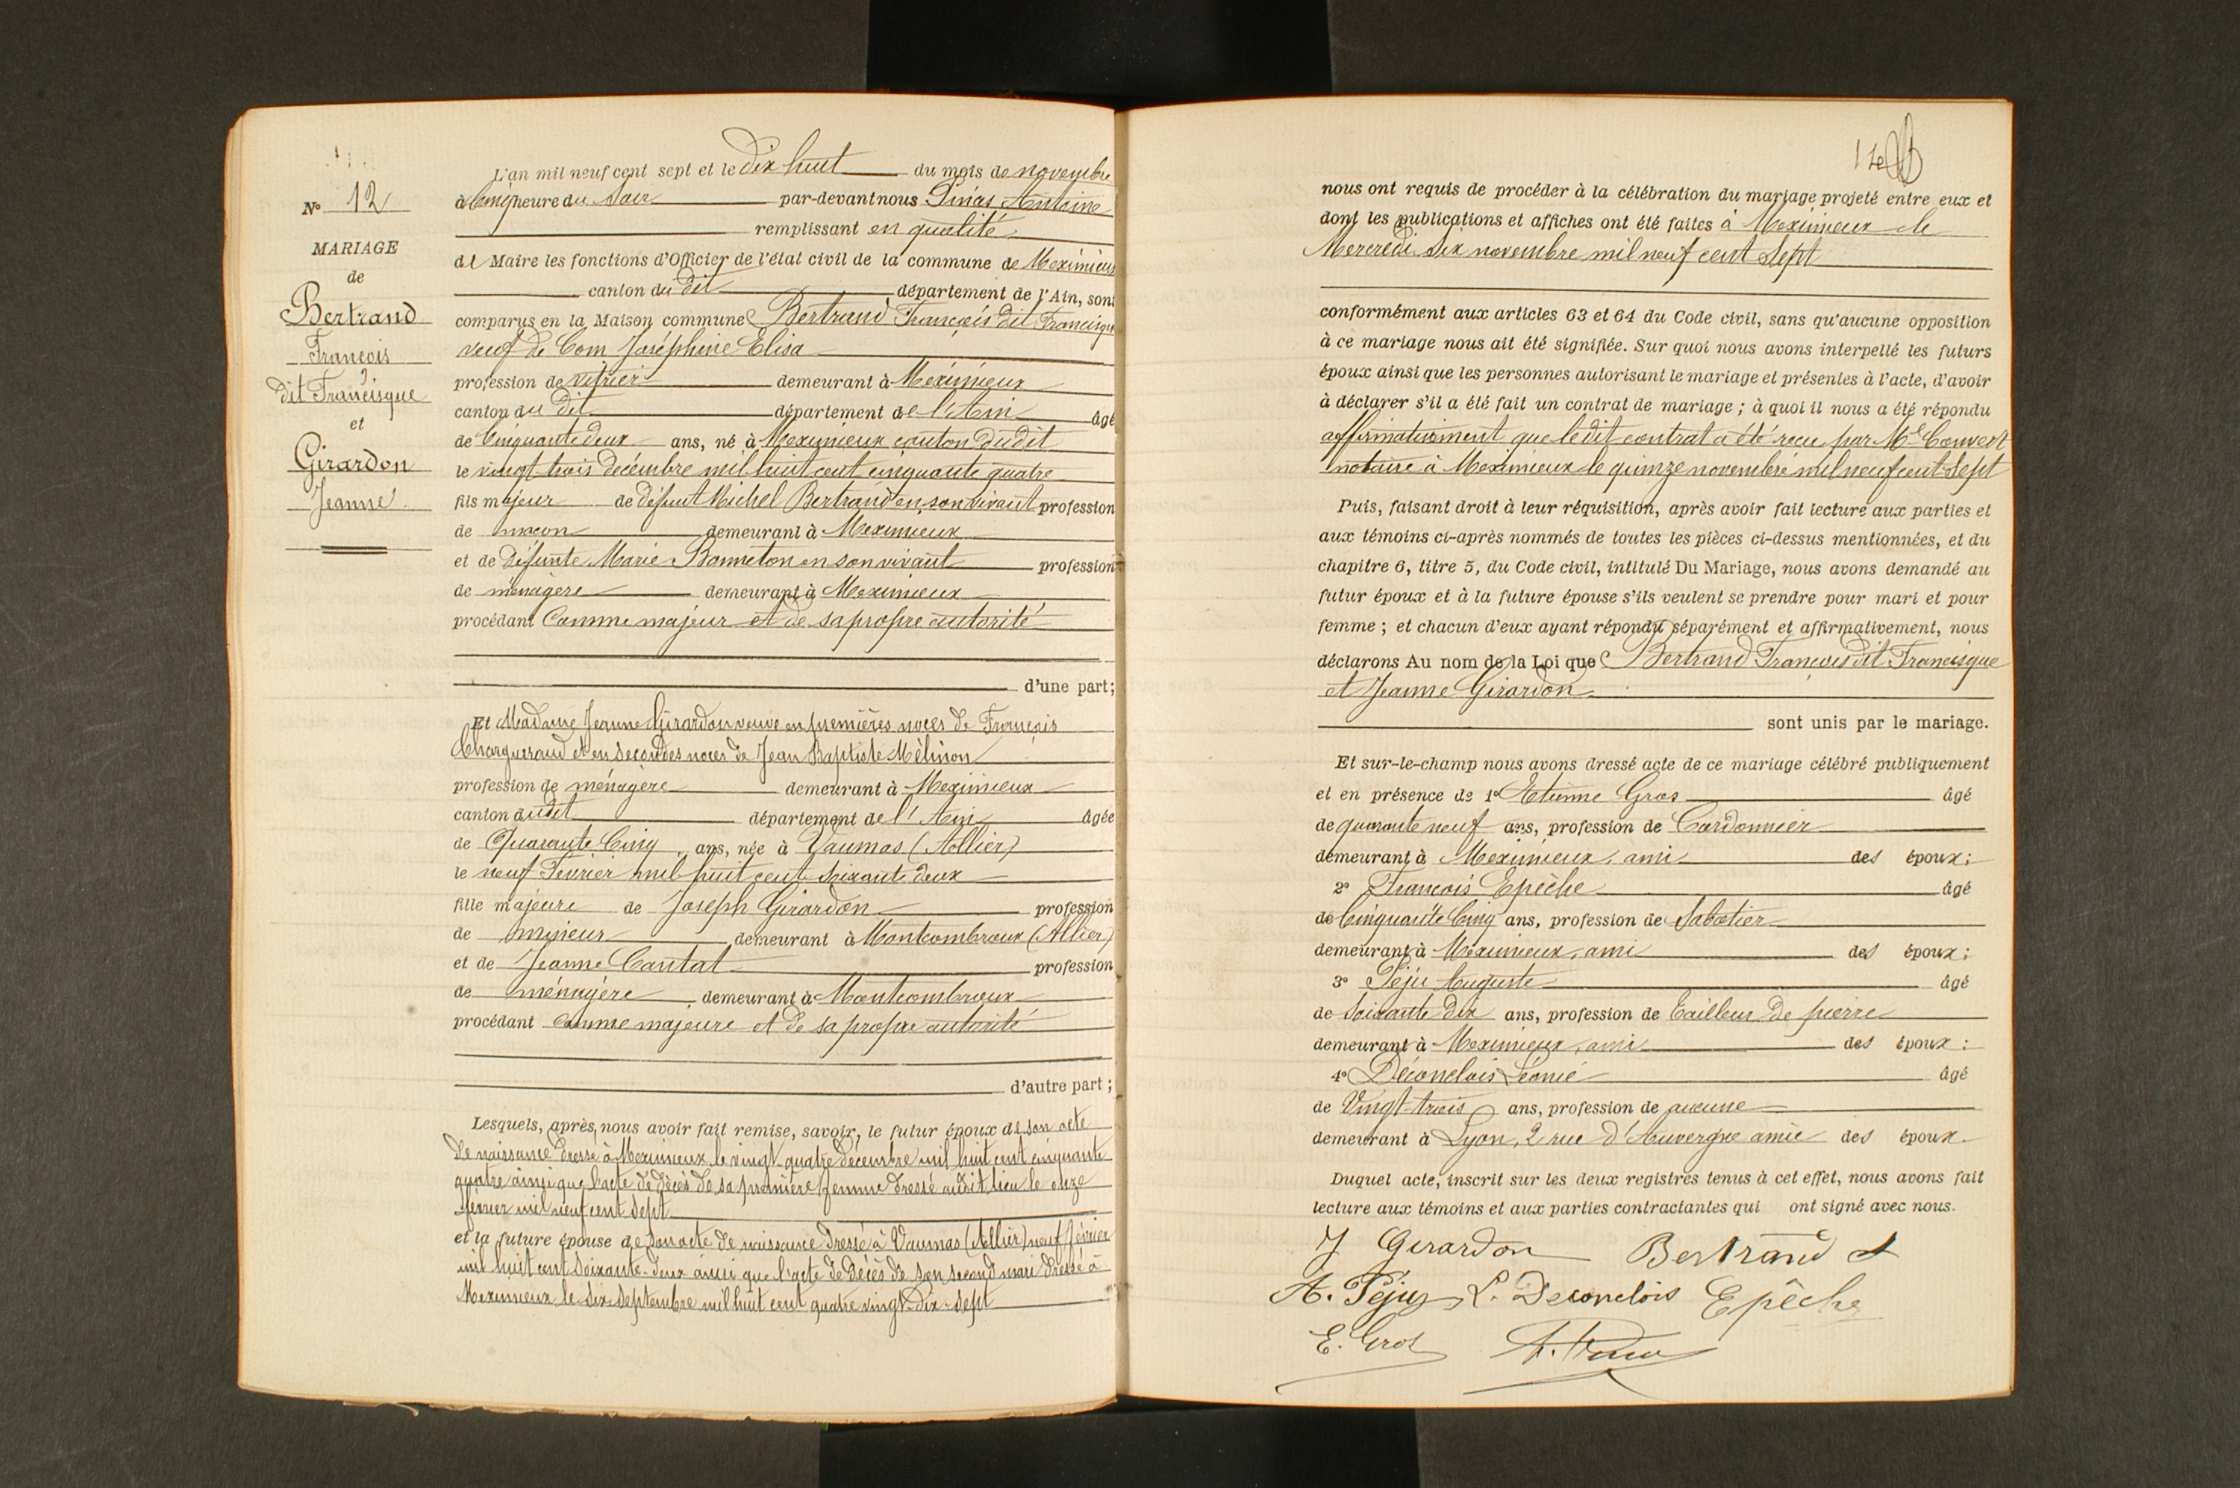 N° 12
MARIAGE
de
Bertrand
François
dit Francisque
et
Girardon
Jeanne
L'an mil neuf cent sept et le dix huit du mois de novembre
à Cinq heure du Soir par-devant nous Pinas Antoine
remplissant en qualité
de Maire les fonctions d'Officier de l'état civil de la commune de Meximieux
canton du dit département de l'Ain, sont
comparus en la Maison commune Bertrand François dit Francisque
veuf de Com Joséphine Elisa
profession de vitrier demeurant à Meximieux
canton du dit département de l'Ain âgé
de Cinquante deux ans, né à Meximieux canton du dit
le vingt trois décembre mil huit cent cinquante quatre
fils majeur de défunt Michel Bertrand en son vivant profession
de maçon demeurant à Meximieux
et de défunte Marie Bonneton en son vivant profession
de ménagère demeurant à Meximieux
procédant Comme majeur et de sa propre autorité
d'une part;
Et Madame Jeanne Girardon veuve en premières noces de François
Chargueraud et en secondes noces de Jean Baptiste Mélinon
profession de ménagère demeurant à Meximieux
canton du dit département de l'Ain âgée
de Quarante Cinq ans, née à Vaumas (Allier)
le neuf Février mil huit cent soixante deux
fille majeure de Joseph Girardon profession
de mineur demeurant à Montcombroux (Allier)
et de Jeanne Cantat profession
de ménagère demeurant à Montcombroux
procédant comme majeure et de sa propre autorité
d'autre part;
Lesquels, après nous avoir fait remise, savoir, le futur époux de son acte
de naissance dressé à Meximieux le vingt-quatre décembre mil huit cent cinquante
quatre ainsi que l'acte de décès de sa première femme dressé audit lieu le onze
février mil neuf cent sept
et la future épouse de son acte de naissance dressé à Vaumas (Allier) neuf février
mil huit cent soixante-deux ainsi que l'acte de décès de son second mari dressé à
Meximieux le six septembre mil huit cent quatre vingt-dix-sept
nous ont requis de procéder à la célébration du mariage projeté entre eux et
dont les publications et affiches ont été faites à Meximieux le
Mercredi six novembre mil neuf cent sept
conformément aux articles 63 et 64 du Code civil, sans qu'aucune opposition
à ce mariage nous ait été signifiée. Sur quoi nous avons interpellé les futurs
époux ainsi que les personnes autorisant le mariage et présentes à l'acte, d'avoir
à déclarer s'il a été fait un contrat de mariage; à quoi il nous a été répondu
affirmativement que ledit contrat a été reçu par Me Convert
notaire à Meximieux le quinze novembre mil neuf cent sept
Puis, faisant droit à leur réquisition, après avoir fait lecture aux parties et
aux témoins ci-après nommés de toutes les pièces ci-dessus mentionnées, et du
chapitre 6, titre 5, du Code civil, intitulé Du Mariage, nous avons demandé au
futur époux et à la future épouse s'ils veulent se prendre pour mari et pour
femme; et chacun d'eux ayant répondu séparément et affirmativement, nous
déclarons Au nom de la Loi que Bertrand François dit Francisque
et Jeanne Girardon
sont unis par le mariage.
Et sur-le-champ nous avons dressé acte de ce mariage célébré publiquement
et en présence de 1° Etienne Gros âgé
de quarante neuf ans, profession de Cordonnier
demeurant à Meximieux, ami des époux;
2° François Epêche âgé
de Cinquante Cinq ans, profession de Sabotier
demeurant à Meximieux, ami des époux;
3° Péju Auguste âgé
de Soixante dix ans, profession de tailleur de pierre
demeurant à Meximieux, ami des époux:
4° Déconclois Léonie âgé
de Vingt-trois ans, profession de aucune
demeurant à Lyon, 2 rue d'Auvergne amie des époux.
Duquel acte, inscrit sur les deux registres tenus à cet effet, nous avons fait
lecture aux témoins et aux parties contractantes qui ont signé avec nous.
J Girardon Bertrand
A. Péju L. Deconclois Epêche
E. Gros